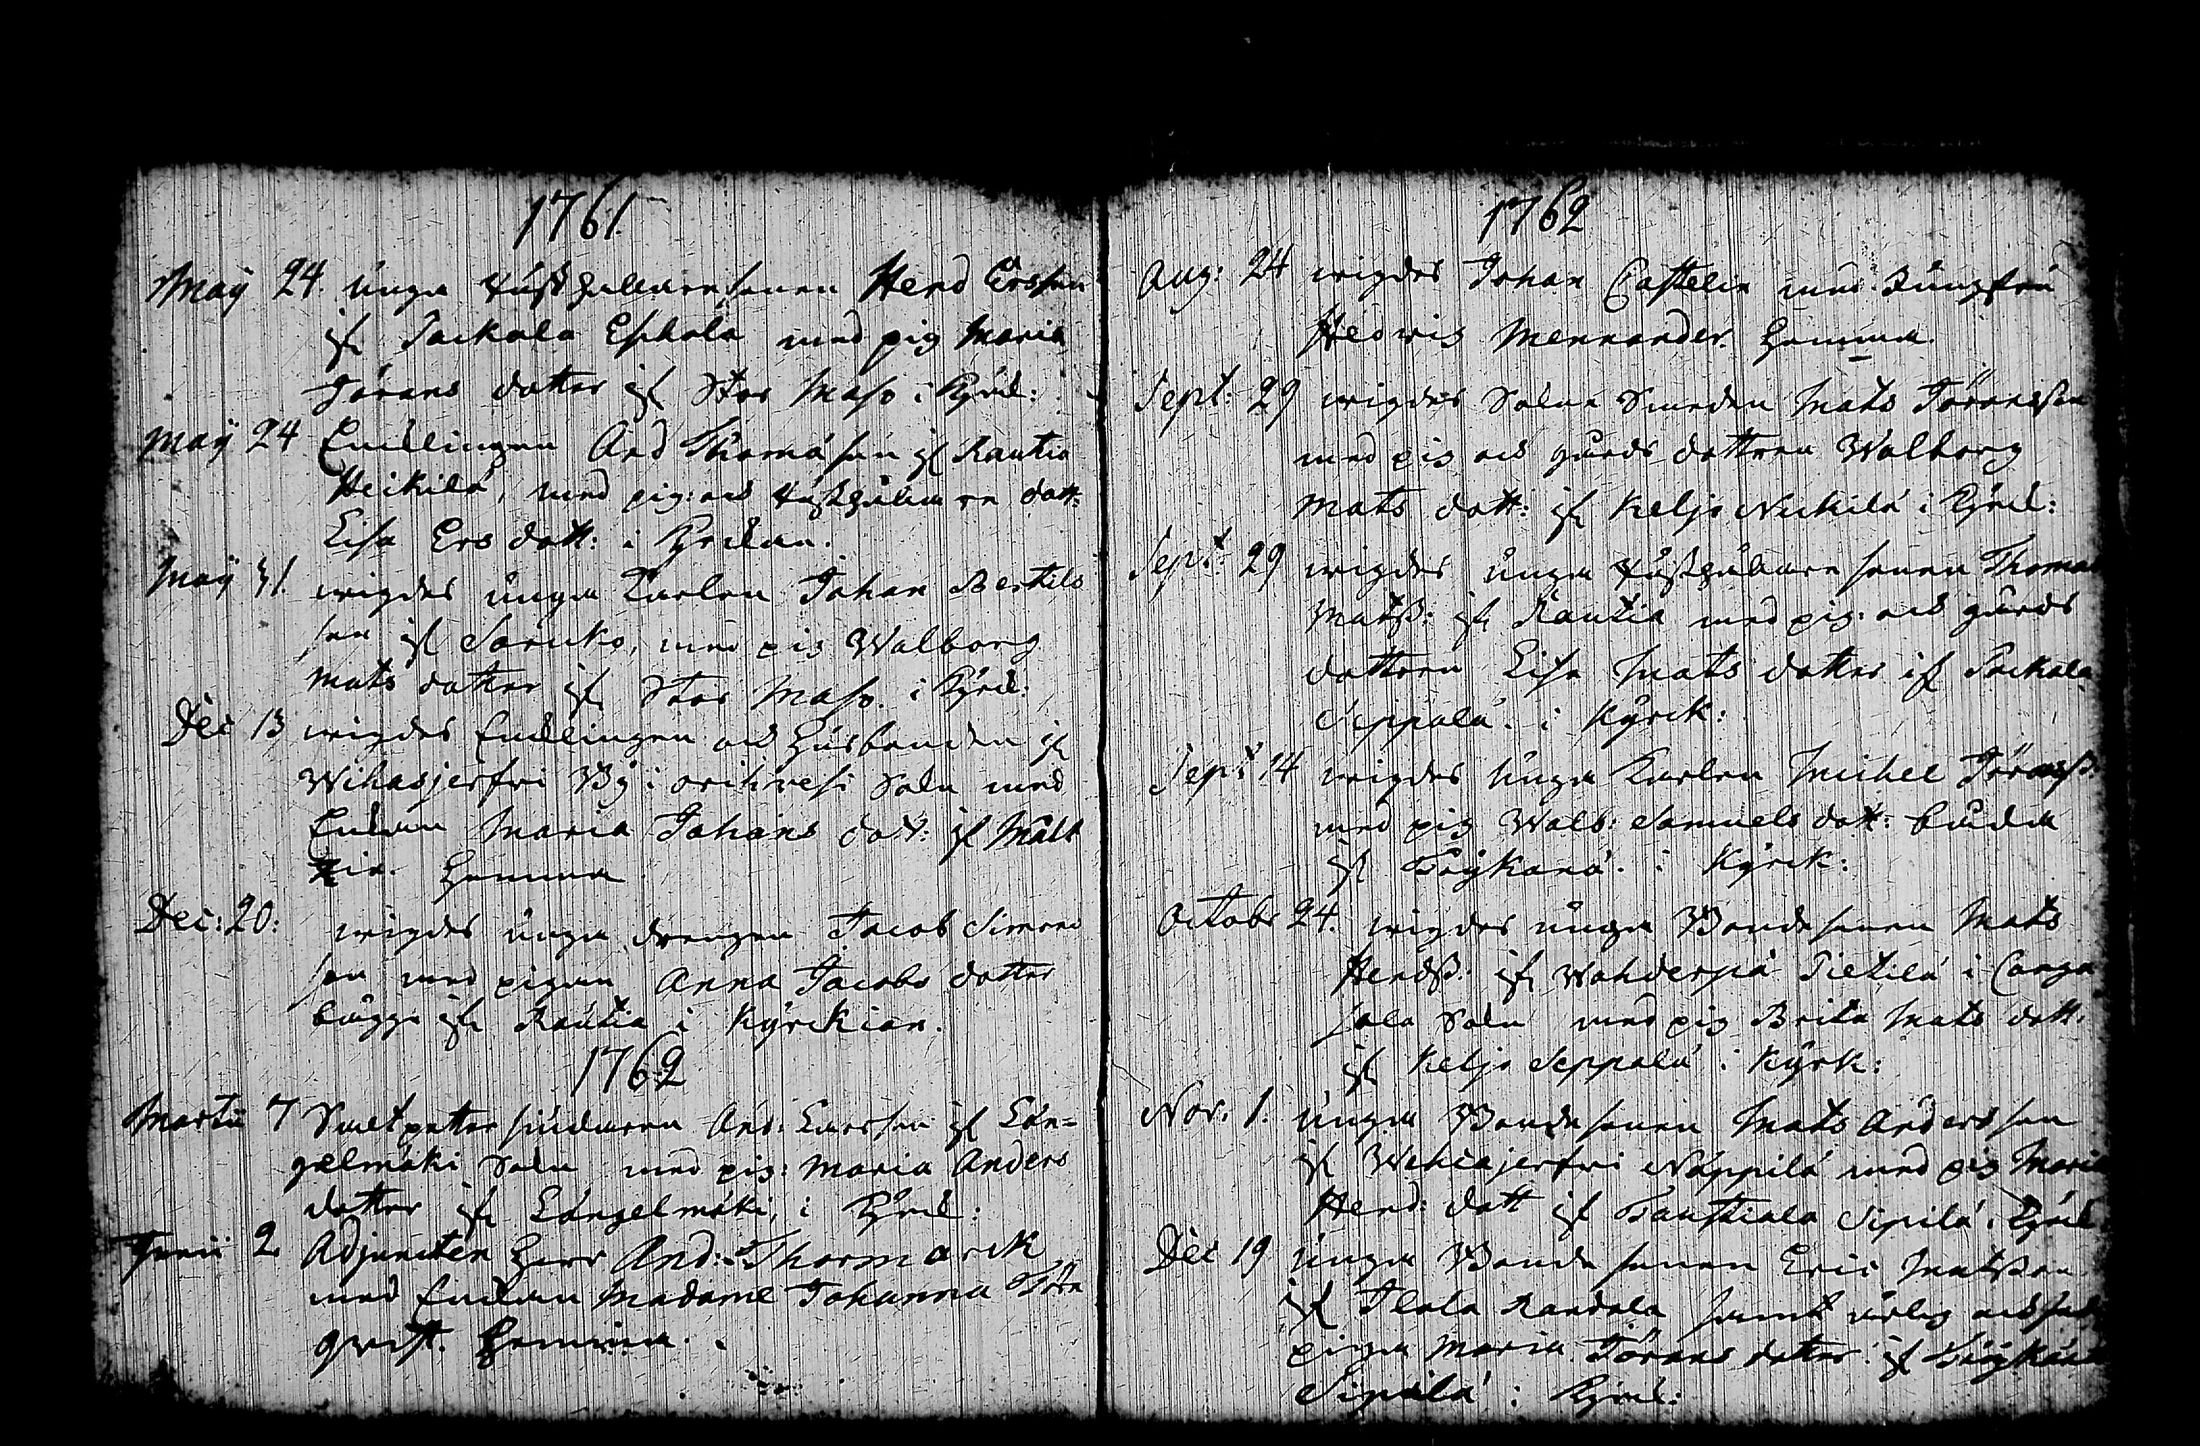 1761
May 24. unga Rusthållaresonen Hend Ersson
if Sackala Eskola med pig Maria
Jörans dotter if Stor Maso i Kyrck:
May 24 Encklingen And Thomason if Rautia
Heikilä, med pig: och Rusthållare dott:
Lisa Ers dott: i Kyrckan.
May 31. wigdes unga Karlen Johan Bertils
son if med pig Walborg
Mats dotter if Stor Maso i Kyrck:
Dec 13 wigdes Encklingen och Husbonden if
Wihasjerfwi By i Orihwesi Sokn med
Enckan Maria Johans dott: if
Hemma
Dec: 20: wigdes unga drengen Jacob Simons
son med pigan Anna Jacobs dotter
bägge if Rautia i Kyrckian.
1762
Martii 7 Salpetter siudaren And: Larsson if Län=
gelmäki Sokn med pig: Maria Anders
dotter if Längelmäki, i Kyrck:
Junii 2 Adjuncten Herr And: Thormarck
med Enckan Madame Johanna Törn
qwist. Hemma.
1762
Aug: 24 wigdes Johan Castelin med Jungfru
Hedwig Mennander Hemma.
Sept: 29 wigdes Sokne Smeden Mats Jöransson
med pig och gårds dottren Walborg
Mats dott: if Keljo Nickilä i Kyrck:
Sept: 29 wigdes unga Rusthållare sonen Thomas
Matss: if Rautia med pig: och gårds
dottren Lisa Mats dotter if Sackala
Seppälä. i Kyrck:
Sept 14 wigdes unga Karlen Michel Jöranss:
med pig Walb: Samuels dott: båda
if i Kyrck:
Octobr 24. wigdes unga Bondesonen Mats
Hendss: if Wahderpä Pietilä i Canga
sala Sokn med pig Brita Mats dott.
if Keljo Seppälä i Kyrk:
Nov: 1. unga Bondesonen Mats Andersson
if Wehcajerfwi Näppilä med pig Maria
Hend: dott if Pausticala Sipilä. Kyrck
Dec 19 unga Bonde sonen Eric Matsson
if Talala samt ärlig och
pigan Maria Jörans dotter if
Sipilä i Kyrck: